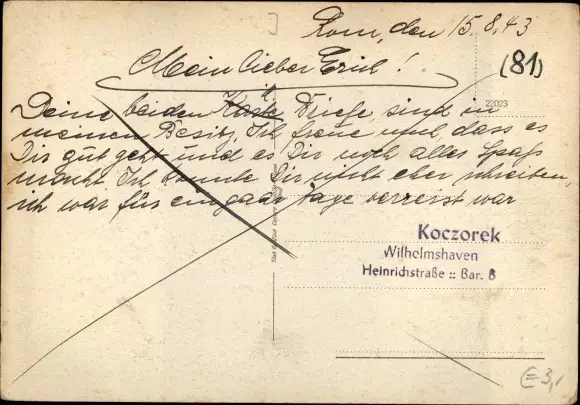 Rom, den 15.8.43
(81)
Mein lieber Erich!
22023
Deine beiden Briefe sind in
meinen Besitz, Ich freue mich, dass es
Dir gut geht und es Dir noch alles Spaß
macht. Ich konnte Dir nicht eher schreiben,
ich war für ein paar Tage verreist war
Koczorek
Wilhelmshaven
Heinrichstraße :: Bar. B